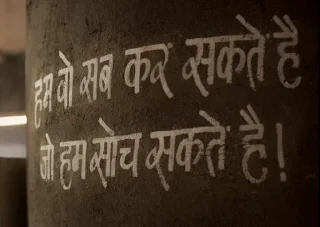 हम वो सब कर सकतें है
जो हम सोच सकतें है!